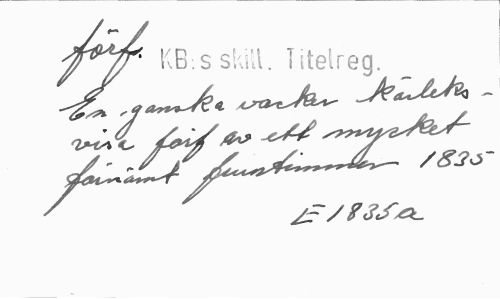 förf. KB:s skill. Titelreg.
En ganska vacker kärleks-
visa förf av ett mycket
förnämt fruntimmer 1835
E 1835 a